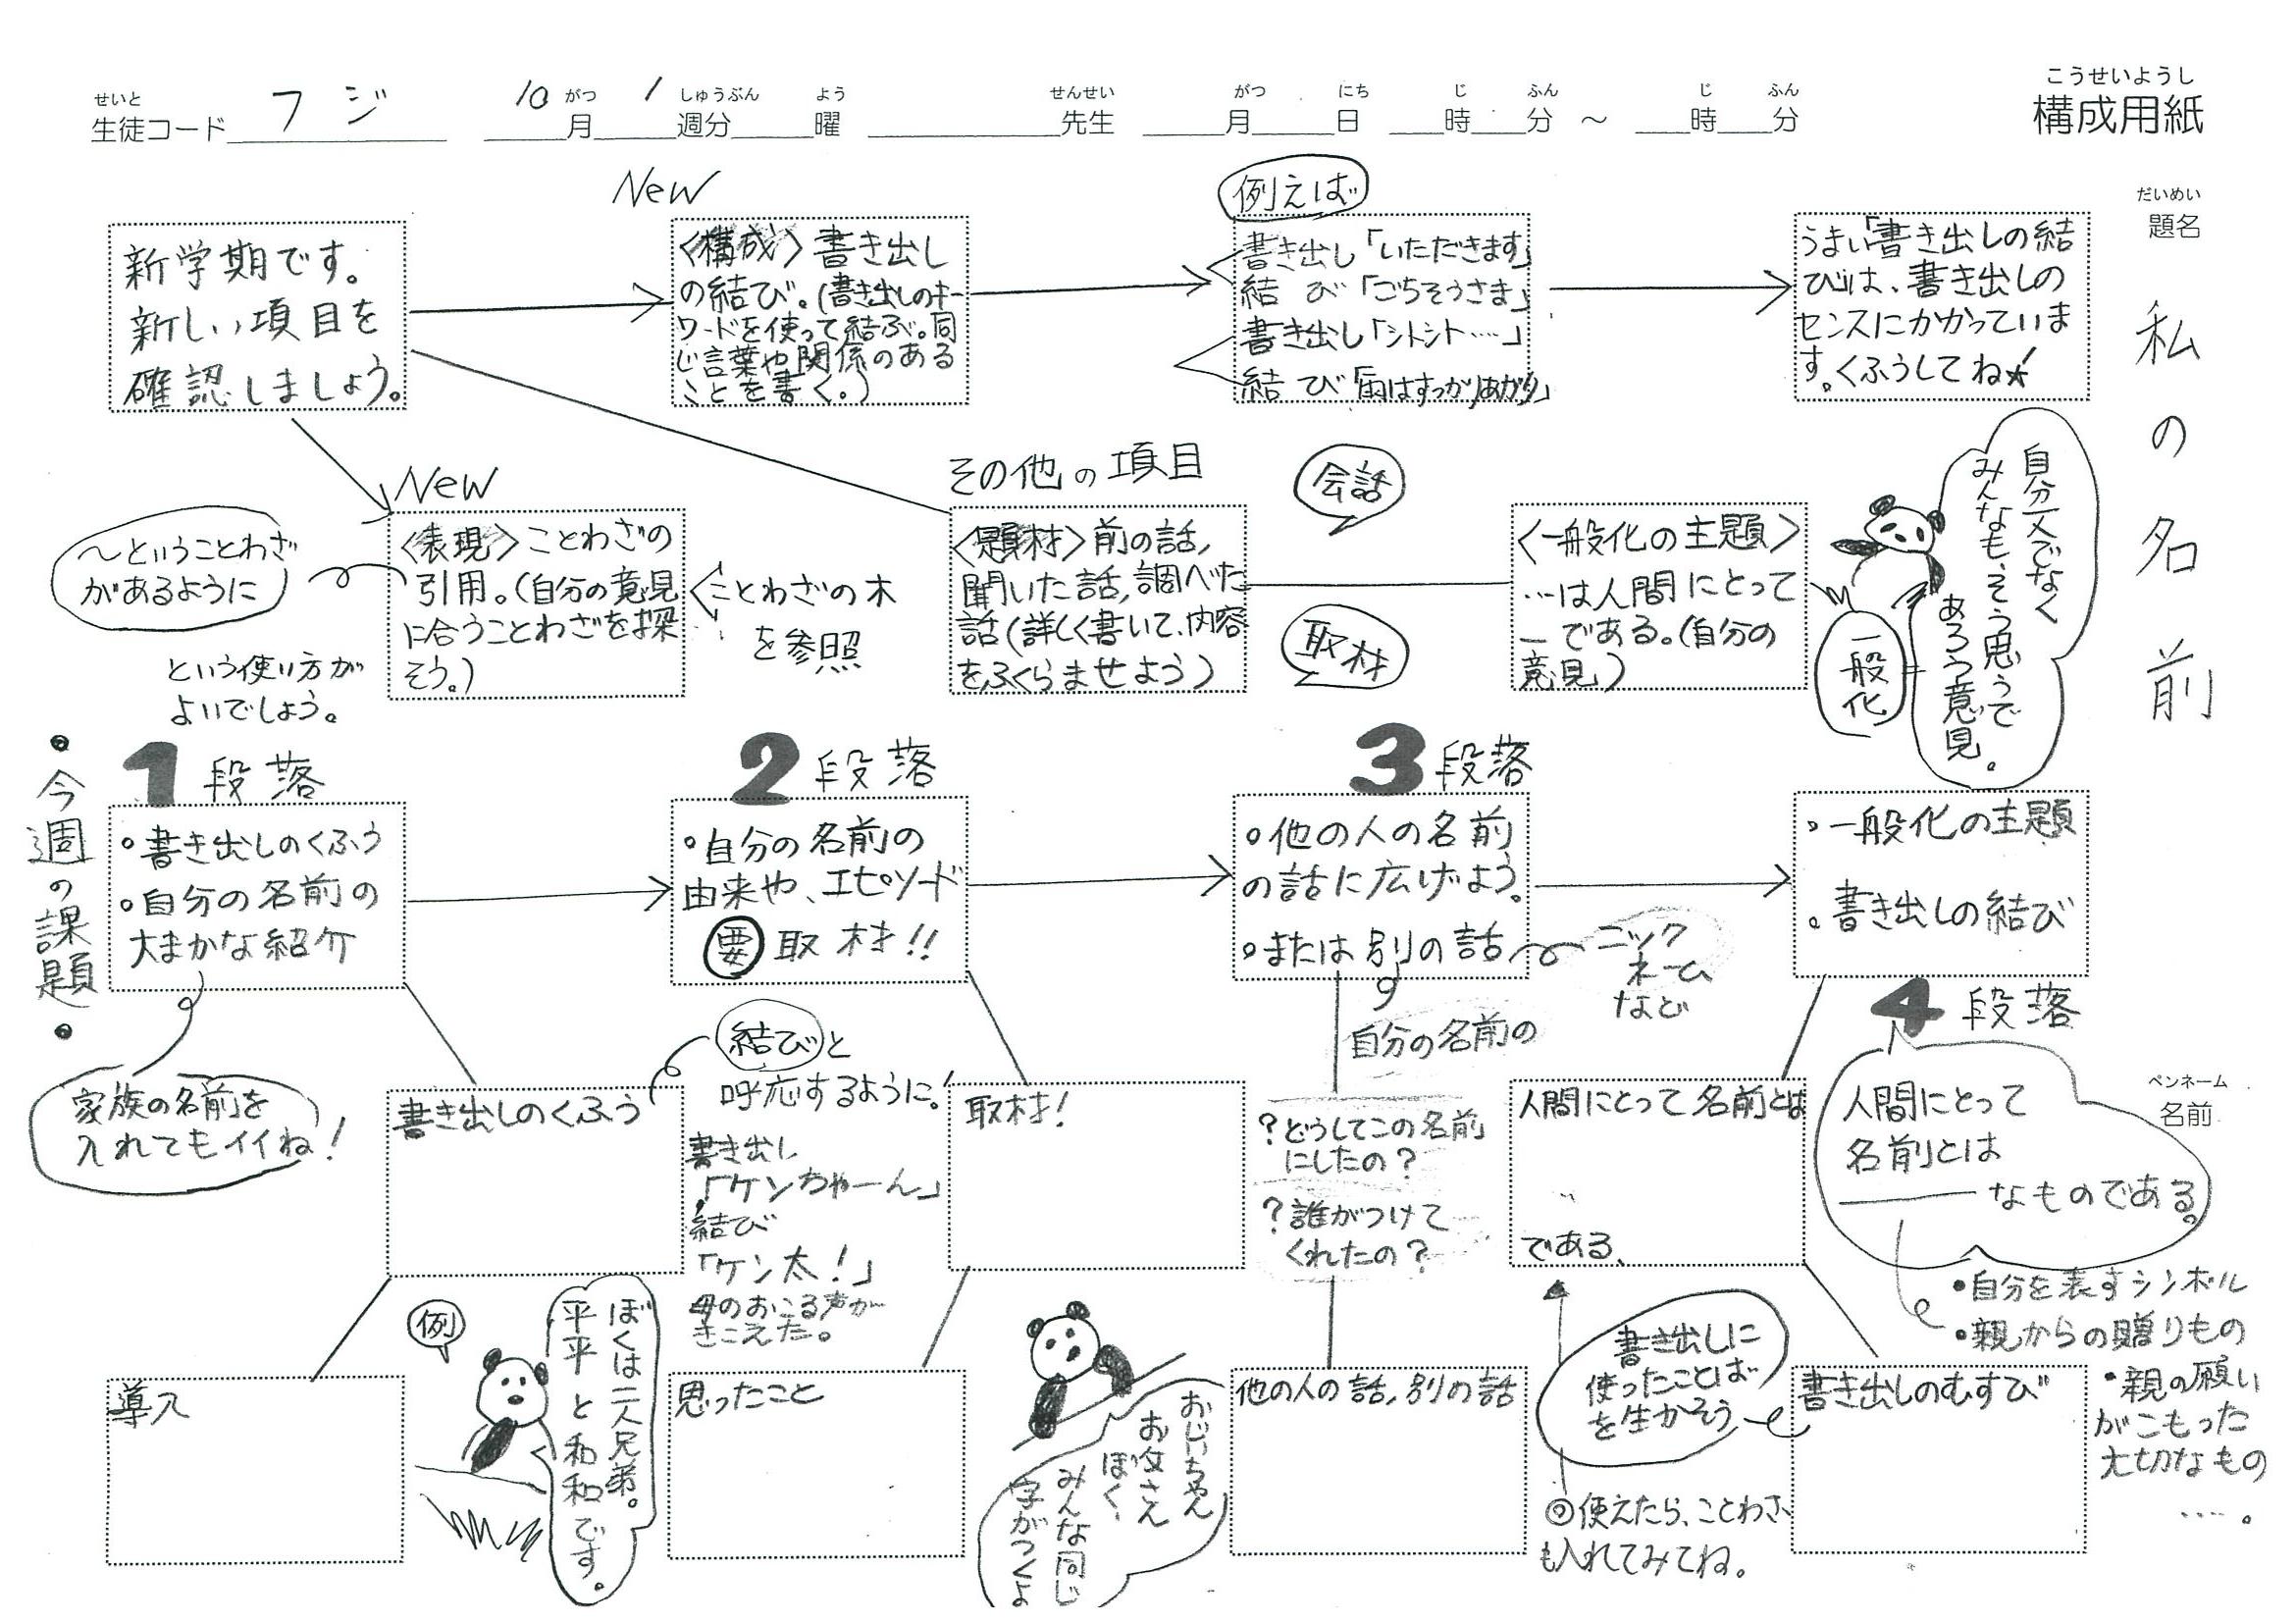 こうせいようし
構成用紙
せいと
生徒コード フジ
10 がつ 1 しゅうぶん よう
月 週分 曜
せんせい
先生
がつ にち じ ふん じ ふん
月 日 時 分 ～ 時 分
だいめい
題名
私の名前
新学期です。
新しい項目を
確認しましょう。
New
〈構成〉書き出し
の結び。(書き出しのキー
ワードを使って結ぶ。同
じ言葉や関係のある
ことを書く。)
例えば
書き出し「いただきます」
結び「ごちそうさま」
書き出し「シトシト……」
結び「雨はすっかりあがり」
うまい「書き出しの結
びは、書き出しの
センスにかかっていま
す。くふうしてね★!
New
〈表現〉ことわざの
引用。(自分の意見
に合うことわざを探
そう。)
～ということわざ
があるように
という使い方が
よいでしょう。
ことわざの木
を参照
その他の項目
〈題材〉前の話,
聞いた話,調べた
話(詳しく書いて、内容
をふくらませよう)
会話
取材
〈一般化の主題〉
…は人間にとって
―である。(自分の
意見)
一般化
自分丈でなく
みんなも、そう思うで
あろう意見。
・今週の課題・
1段落
・書き出しのくふう
・自分の名前の
大まかな紹介
家族の名前を
入れてもイイね!
2段落
・自分の名前の
由来や、エピソード
要 取材!!
3段落
・他の人の名前
の話に広げよう。
・または別の話
ニック
ネーム
など
自分の名前の
・一般化の主題
・書き出しの結び
4段落
人間にとって
名前とは
―――なものである。
・自分を表すシンボル
・親からの贈りもの
・親の願い
がこもった
大切なもの
…。
ペンネーム
名前
書き出しのくふう
結びと
呼応するように!
書き出し
「ケンちゃーん」
結び
「ケン太!」
母のおこる声が
きこえた。
取材!
?どうしてこの名前
にしたの?
?誰がつけて
くれたの?
人間にとって名前とは
である、
導入
例
ぼくは二人兄弟。
平平と和和です。
思ったこと
おじいちゃん
お父さん
ぼく、
みんな同じ
字がつくよ
他の人の話,別の話
書き出しに
使ったことば
を生かそう
◎使えたら、ことわざ
も入れてみてね。
書き出しのむすび